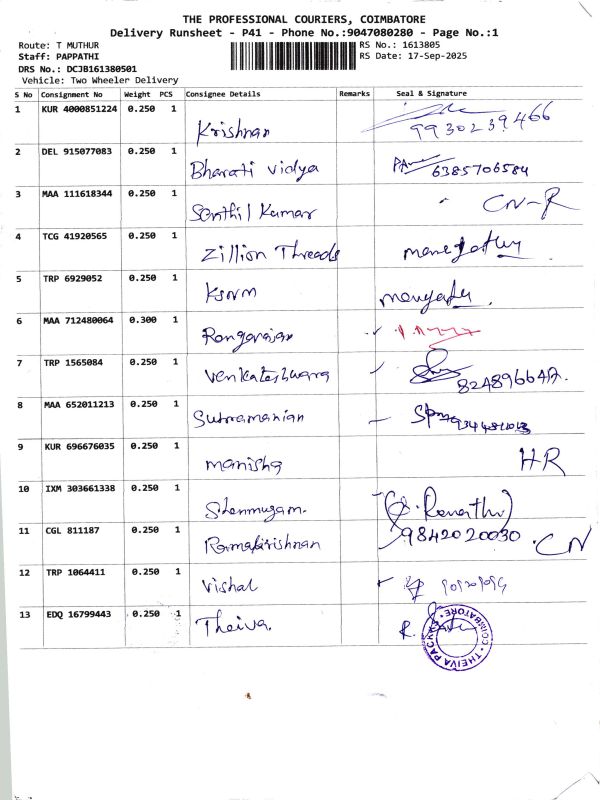 THE PROFESSIONAL COURIERS, COIMBATORE
Delivery Runsheet - P41 - Phone No.:9047080280 - Page No.:1
Route: T MUTHUR
Staff: PAPPATHI
DRS No.: DCJB161380501
Vehicle: Two Wheeler Delivery
RS No.: 1613805
RS Date: 17-Sep-2025
S No Consignment No Weight PCS Consignee Details Remarks Seal & Signature
1 KUR 4000851224 0.250 1 Krishnan 9930239466
2 DEL 915077083 0.250 1 Bharati vidya 6385706584
3 MAA 111618344 0.250 1 Senthil Kumar CN-R
4 TCG 41920565 0.250 1 Zillion Threads
5 TRP 6929052 0.250 1
6 MAA 712480064 0.300 1 Rangarajan
7 TRP 1565084 0.250 1 Venkateshwara
8 MAA 652011213 0.250 1 Subramanian
9 KUR 696676035 0.250 1 manisha HR
10 IXM 303661338 0.250 1 Shenmugam.
11 CGL 811187 0.250 1 Ramakrishnan 9842020030 CN
12 TRP 1064411 0.250 1 Vishal
13 EDQ 16799443 0.250 1 Theiva. R.
THEIVA PACKS COIMBATORE